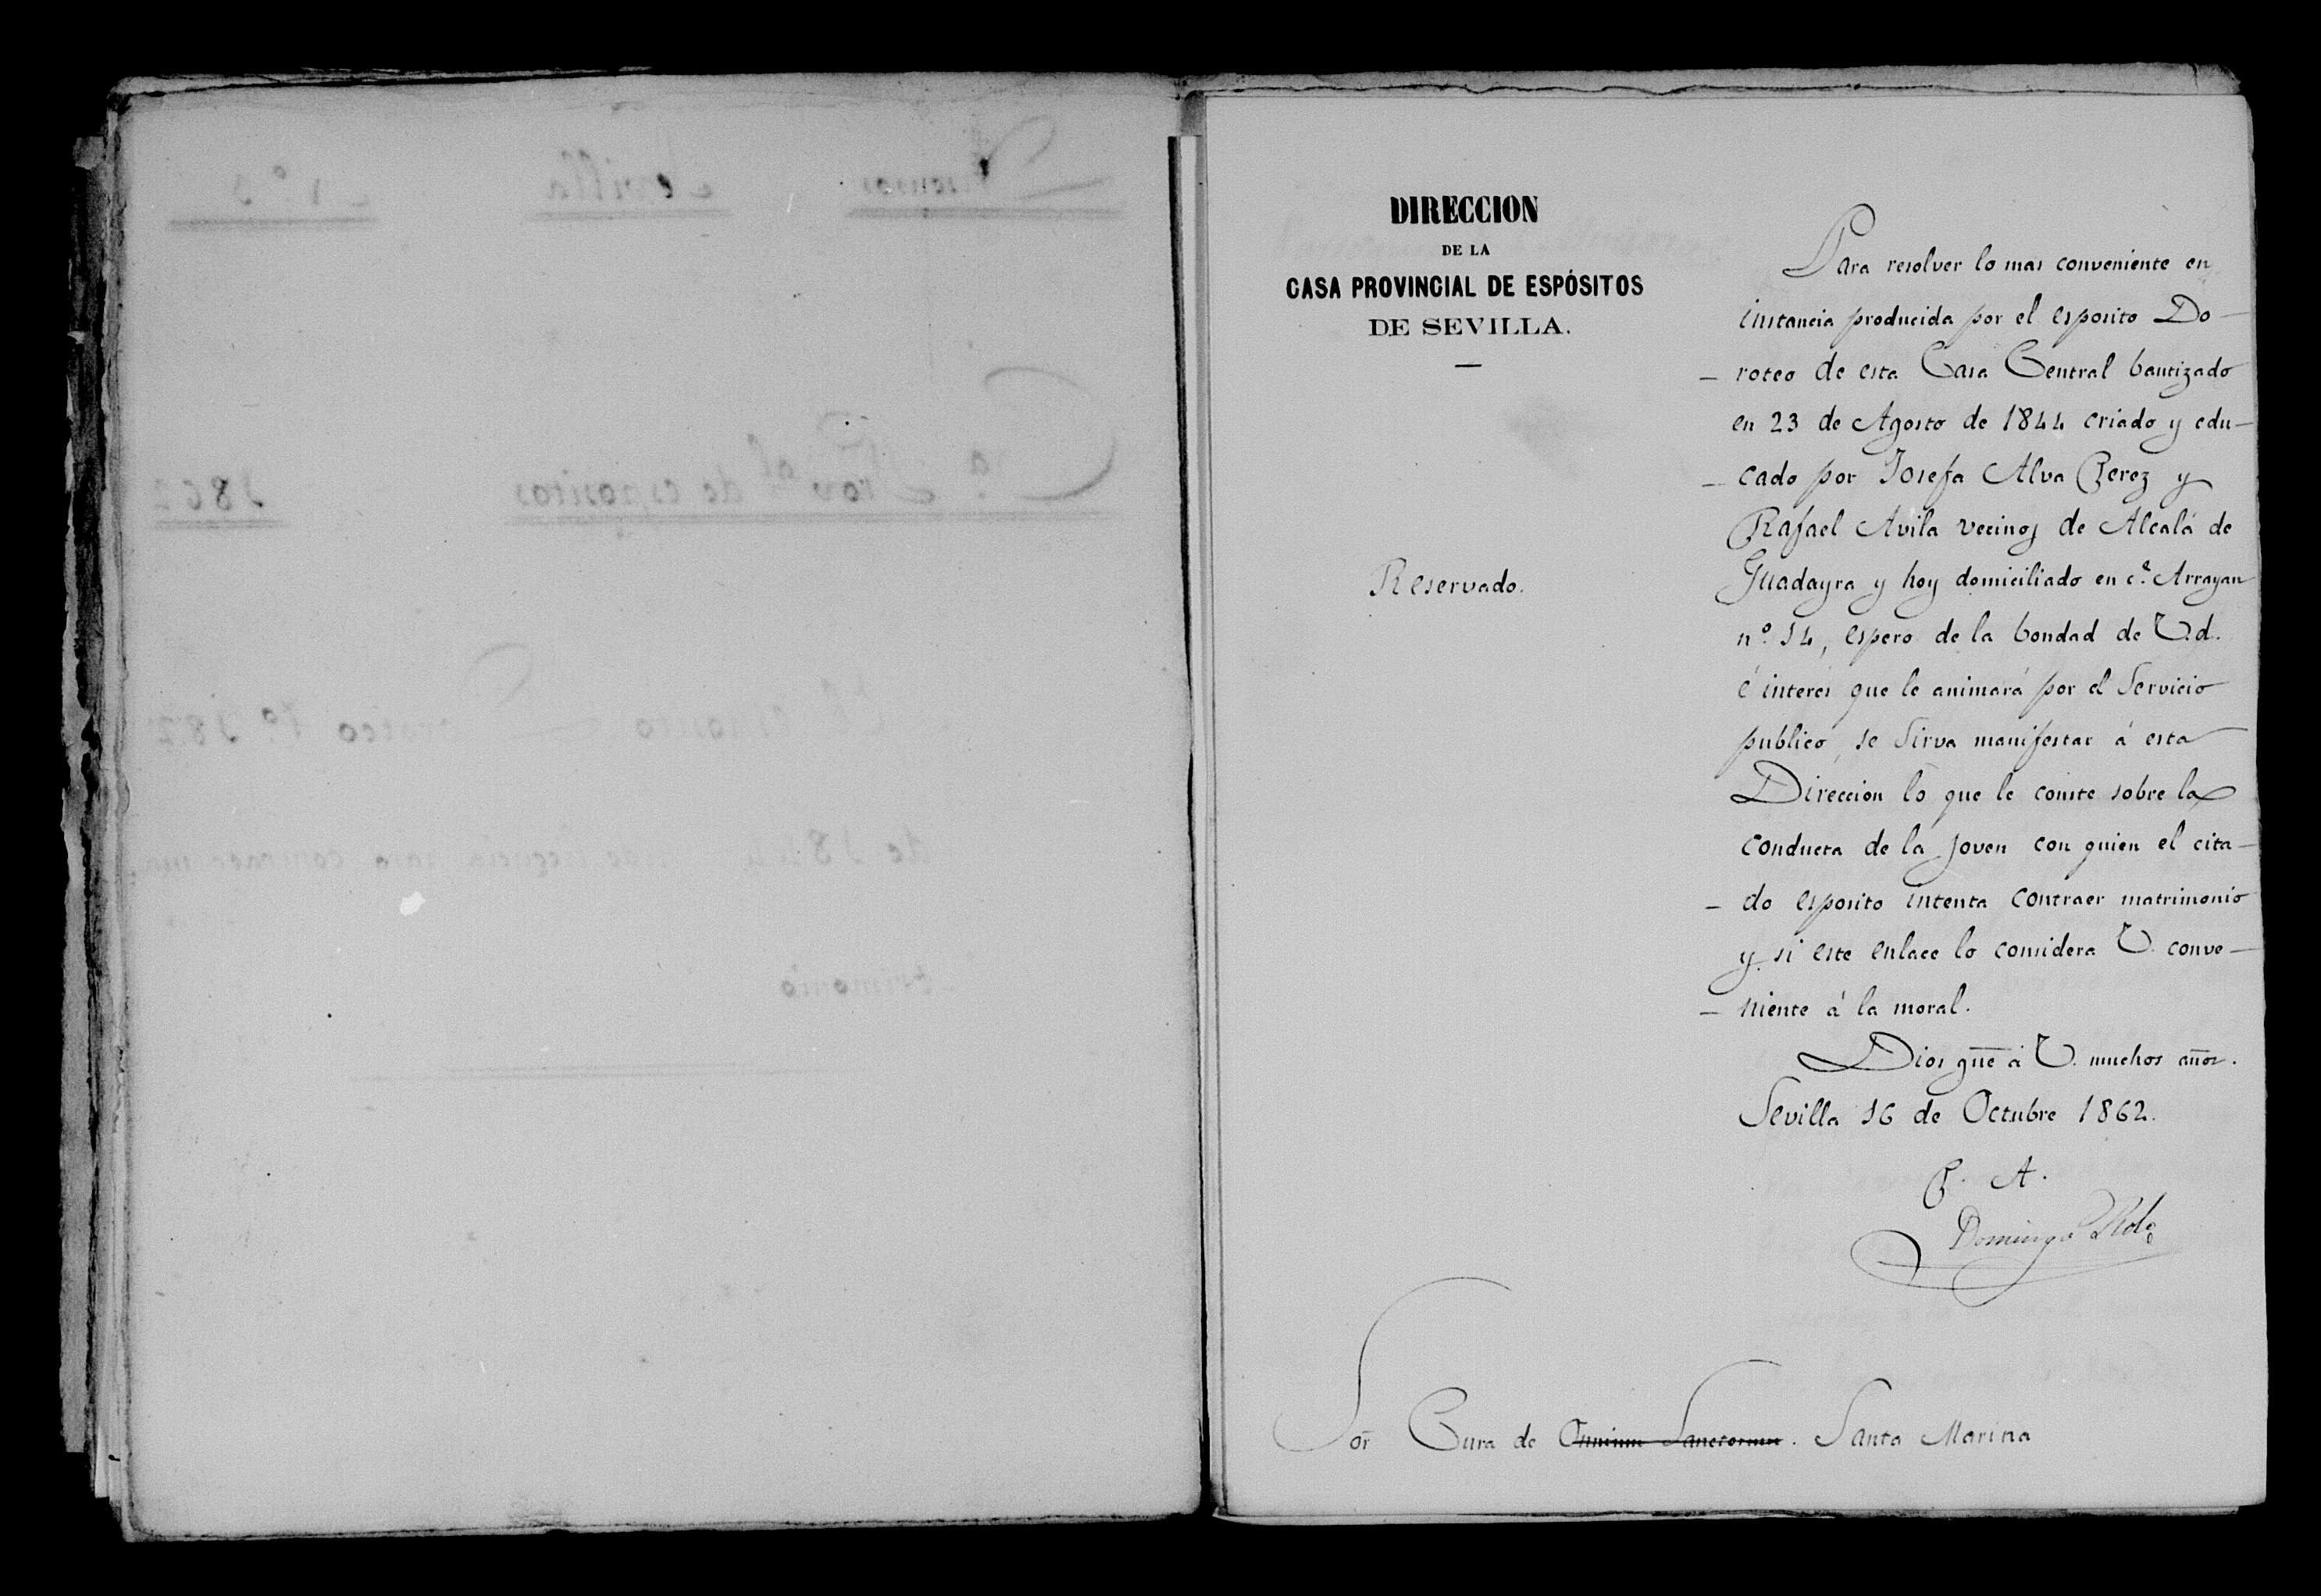 DIRECCION
DE LA
CASA PROVINCIAL DE ESPÓSITOS
DE SEVILLA.
Reservado.
Para resolver lo mas conveniente en
instancia producida por el esposito Do-
-roteo de esta Casa Central bautizado
en 23 de Agosto de 1844 criado y edu-
-cado por Josefa Alva Perez y
Rafael Avila vecinos de Alcalá de
Guadayra y hoy domiciliado en c.e Arrayan
n.º 14, espero de la bondad de V.d.
é interés que le animará por el Servicio
publico, se sirva manifestar á esta
Direccion lo que le conste sobre la
conducta de la joven con quien el cita-
-do esposito intenta contraer matrimonio
y si este enlace lo considera V. conve-
-niente á la moral.
Dios gũe á V. muchos años.
Sevilla 16 de Octubre 1862.
P. A.
Domingo
Sor Cura de Omnium Sanctorum. Santa Marina